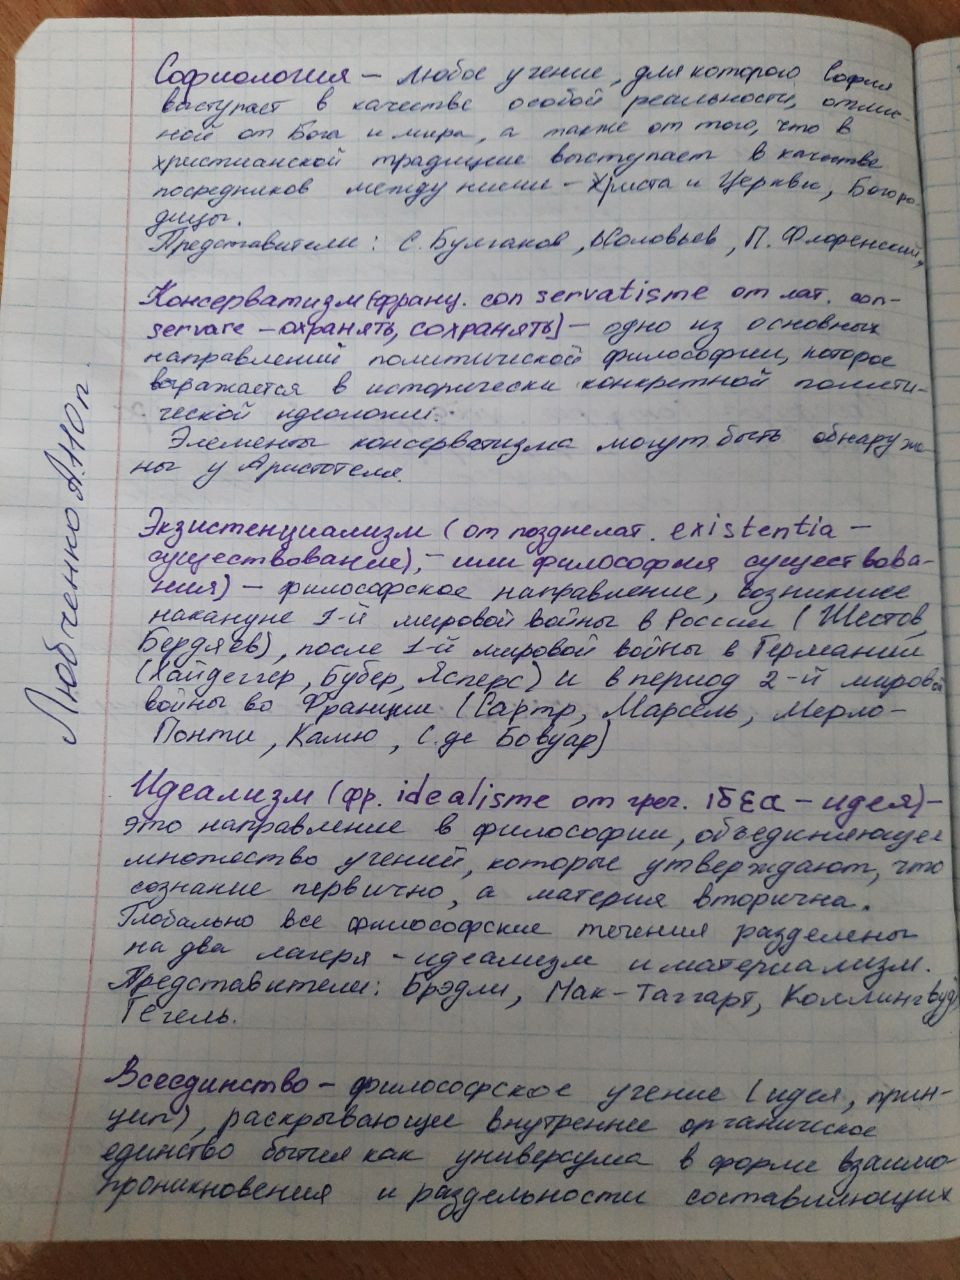 Софиология – любое учение, для которого София
выступает в качестве особой реальности, отлич-
ной от Бога и мира, а также от того, что в
христианской традиции выступает в качестве
посредников между ними – Христа и Церкви, Богоро-
дицы.
Представители: С. Булгаков, Соловьев, П. Флоренский,
Консерватизм (франц. con servatisme от лат. con-
servare – охранять, сохранять) – одно из основных
направлений политической философии, которое
выражается в исторически конкретной полити-
ческой идеологии.
Элементы консерватизма могут быть обнаруже-
ны у Аристотеля.
Экзистенциализм (от позднелат. existentia –
существование), – или философия существова-
ния) – философское направление, возникшее
накануне 1-й мировой войны в России (Шестов,
Бердяев), после 1-й мировой войны в Германии
(Хайдеггер, Бубер, Ясперс) и в период 2-й мировой
войны во Франции (Сартр, Марсель, Мерло-
Понти, Камю, С. де Бовуар)
Идеализм (фр. idealisme от грег. ιδεα – идея) –
это направление в философии, объединяющее
множество учений, которые утверждают, что
сознание первично, а материя вторична.
Глобально все философские течения разделены
на два лагеря – идеализм и материализм.
Представители: Брэдли, Мак-Таггарт, Коллингвуд,
Гегель.
Всеединство – философское учение (идея, прин-
цип), раскрывающее внутреннее органическое
единство бытия как универсума в форме взаимо-
проникновения и раздельности составляющих
Любченко А. 110 п.